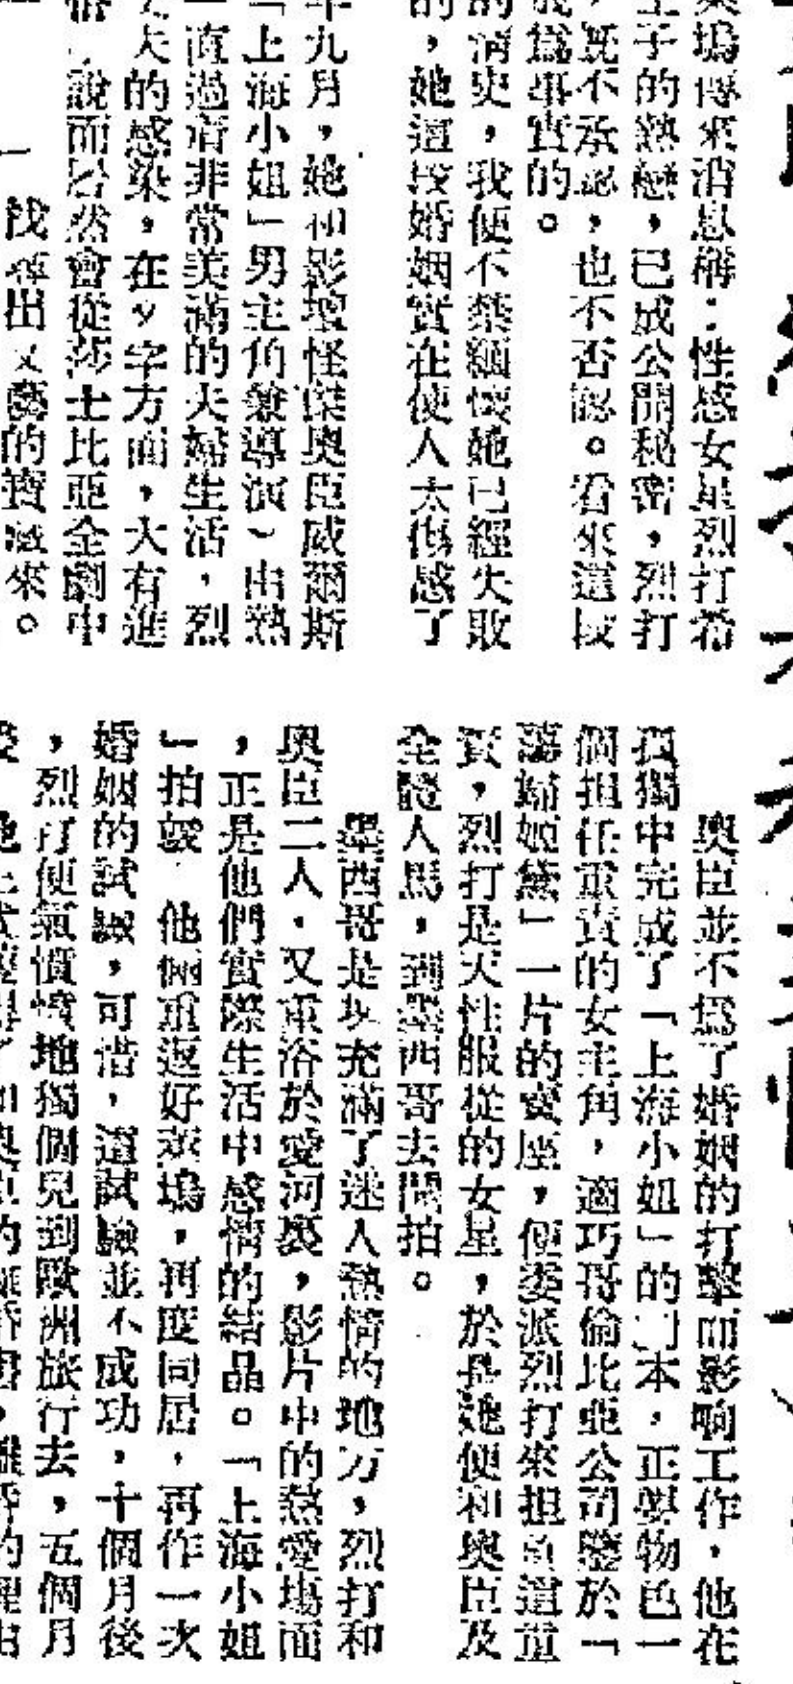 塢傳來消息稱：性感女星烈打希
子的熱戀，已成公開秘密，烈打
，既不承認，也不否認。看來這段
成爲事實的。
的情史，我便不禁緬懷她已經失敗
的，她這段婚姻實在使人太傷感了
年九月，她和影壇怪傑奧臣威爾斯
「上海小姐」男主角兼導演）由熱
一直過着非常美滿的夫婦生活，烈
丈夫的感染，在文字方面，大有進
說而居然會從莎士比亞全劇中
找尋出文藝的寶藏來。
奧臣並不爲了婚姻的打擊而影响工作，他在
孤獨中完成了「上海小姐」的劇本，正要物色一
個担任重責的女主角，適巧哥倫比亞公司鑒於「
蕩婦姬黛」一片的賣座，便委派烈打來担負這重
責，烈打是天性服從的女星，於是她便和奧臣及
全體人馬，到墨西哥去開拍。
墨西哥是塊充滿了迷人熱情的地方，烈打和
奧臣二人，又重浴於愛河裏，影片中的熱愛塲面
，正是他們實際生活中感情的結晶。「上海小姐
」拍竣 他倆重返好萊塢，再度同居，再作一次
婚姻的試驗，可惜，這試驗並不成功，十個月後
，烈打便氣憤憤地獨個兒到歐洲旅行去，五個月